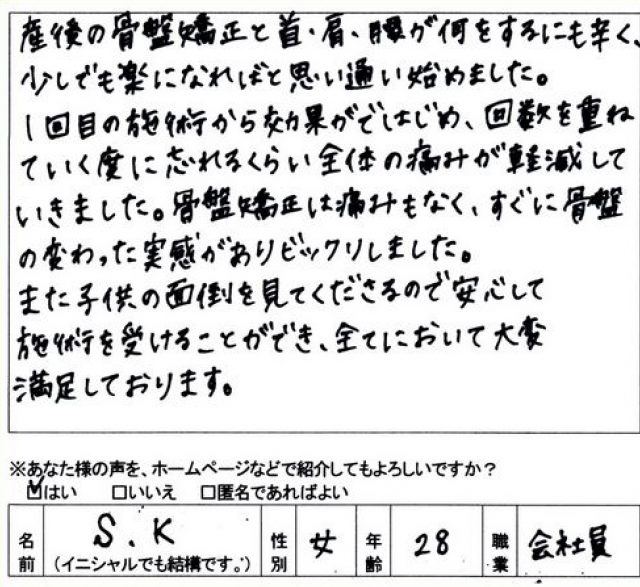 産後の骨盤矯正と首・肩・腰が何をするにも辛く、
少しでも楽になればと思い通い始めました。
1回目の施術から効果がではじめ、回数を重ね
ていく度に忘れるくらい全体の痛みが軽減して
いきました。骨盤矯正は痛みもなく、すぐに骨盤
の変わった実感がありビックリしました。
また子供の面倒を見てくださるので安心して
施術を受けることができ、全てにおいて大変
満足しております。
※あなた様の声を、ホームページなどで紹介してもよろしいですか？
☑はい □いいえ □匿名であればよい
名前 S.K (イニシャルでも結構です。) 性別 女 年齢 28 職業 会社員